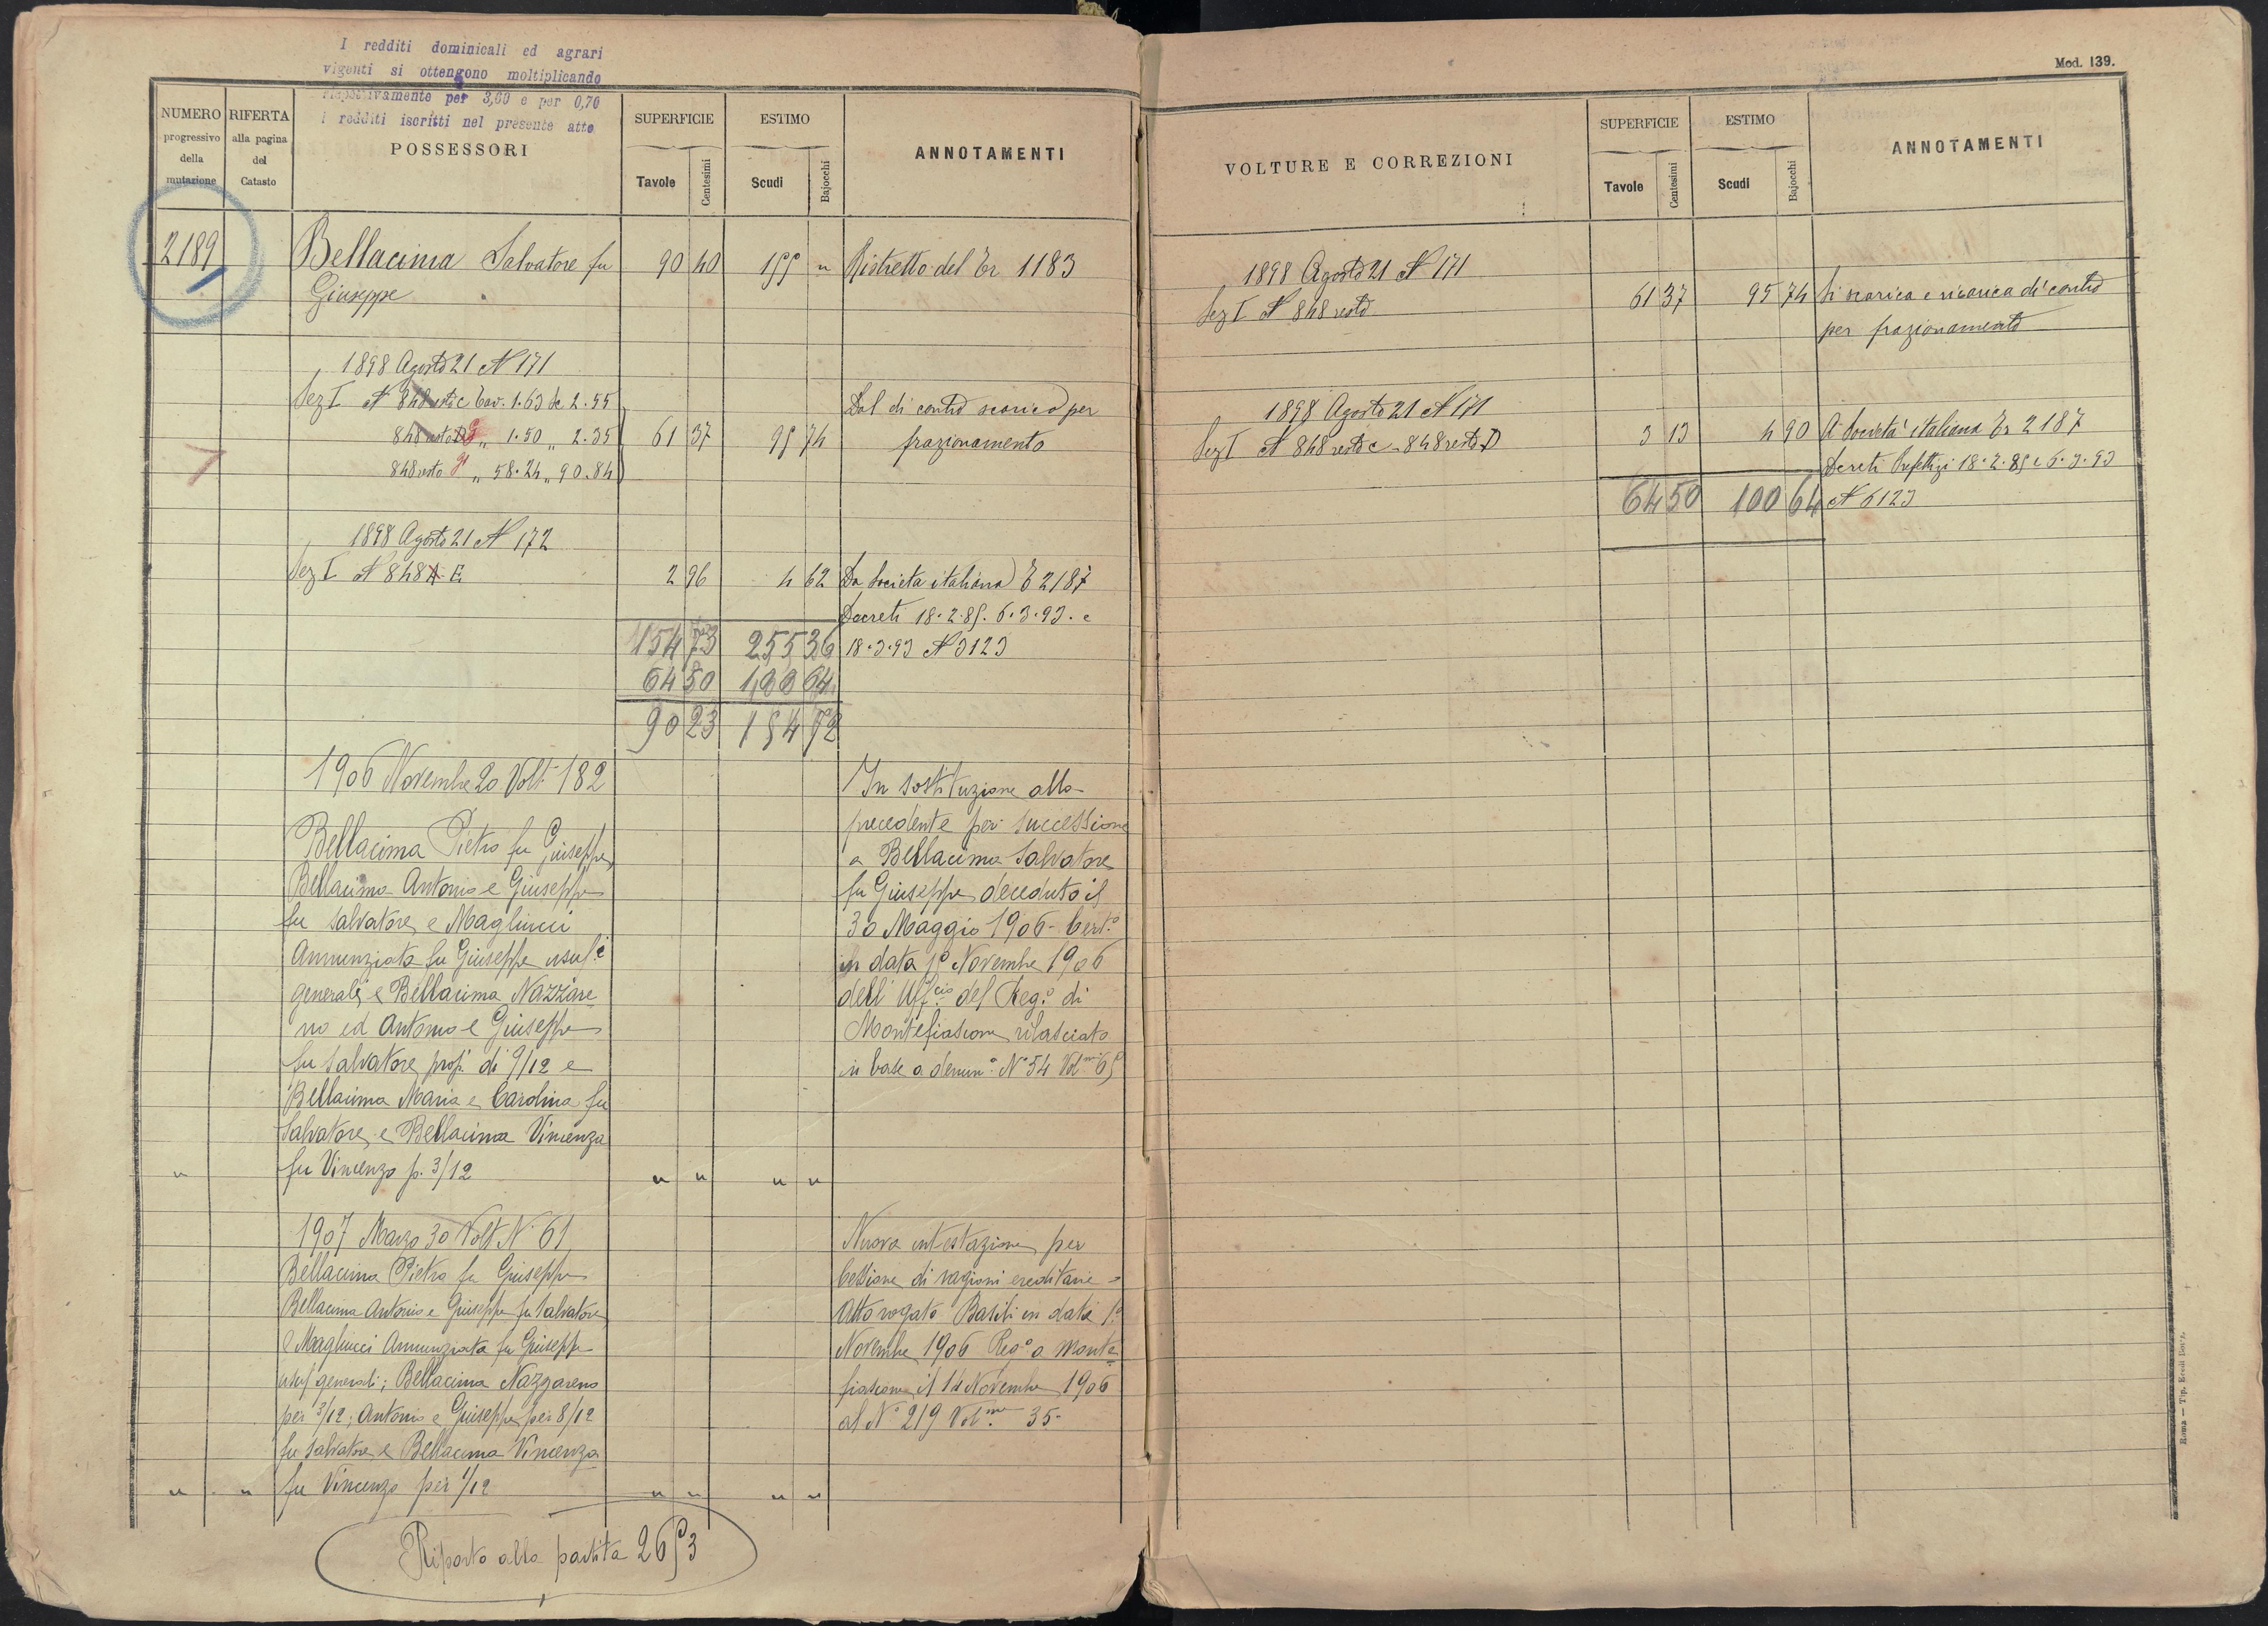 I redditi dominicali ed agrari
vigenti si ottengono moltiplicando
rispettivamente per 3,60 e per 0,70
i redditi iscritti nel presente atto
NUMERO
progressivo
della
mutazione
RIFERTA
alla pagina
del
Catasto
POSSESSORI
SUPERFICIE
Tavole
Centesimi
ESTIMO
Scudi
Bajocchi
ANNOTAMENTI
2189 Bellacima Salvatore fu 90 40 155 " Ristretto del Er 1183
Giuseppe
1898 Agosto 21 N 171
Sez I N 848 resto C Tav. 1.63 Sc 2.55
848 resto D " 1.50 " 2.35
848 resto " 58.24 " 90.84
61 37 95 74
Dal di contro scarico per
frazionamento
1898 Agosto 21 N 172
Sez I N 848 E 2 96 4 62 Da Società italiana E 2187
Decreti 18.2.85. 6.3.93. e
154 73 255 36 18.3.93 N 3123
64 50 100 64
90 23 154 72
1906 Novembre 20 Volt 182
Bellacima Pietro fu Giuseppe,
Bellacima Antonio e Giuseppe
fu Salvatore e Magliucci
Annunziata fu Giuseppe usuf.i
generali, e Bellacima Nazzare
no ed Antonio e Giuseppe
fu Salvatore prop. di 9/12 e
Bellacima Maria e Carolina fu
Salvatore, e Bellacima Vincenza
" fu Vincenzo p. 3/12 " " " "
In sostituzione alla
precedente per successione
a Bellacima Salvatore
fu Giuseppe deceduto il
30 Maggio 1906 - Cert.o
in data 1º Novembre 1906
dell' Uff.cio del Reg.o di
Montefiascone rilasciato
in base a denun.a Nº 54 Vol.me 65
1907 Marzo 30 Volt N. 61
Bellacima Pietro fu Giuseppe
Bellacima Antonio e Giuseppe fu Salvatore
e Magliucci Annunziata fu Giuseppe
usuf generali; Bellacima Nazzareno
per 3/12; Antonio e Giuseppe per 8/12
fu Salvatore e Bellacima Vincenza
" " fu Vincenzo per 1/12 " " " "
Nuova intestazione per
Cessione di ragioni ereditarie -
Atto rogato Basili in data 1.o
Novembre 1906 Reg.o a Monte
fiascone il 14 Novembre 1906
al Nº 219 Vol.me 35.
Riporto alla partita 2653
Mod. 139.
VOLTURE E CORREZIONI
SUPERFICIE
Tavole
Centesimi
ESTIMO
Scudi
Bajocchi
ANNOTAMENTI
1898 Agosto 21 N 171
Sez I N 848 resto 61 37 95 74 Si scarica e ricarica di contro
per frazionamento
1898 Agosto 21 N 171
Sez I N 848 resto C - 848 resto D 3 13 4 90 A Società italiana Er 2187
Decreti Prefettizi 18.2.85 e 6.3.93
64 50 100 64 N 6123
Roma — Tip. Eredi Botta.